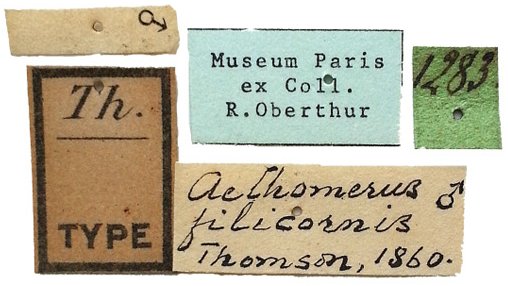 ♂
Museum Paris
ex Coll.
R.Oberthur
1283.
Th.
TYPE
Aethomerus ♂
filicornis
Thomson, 1860.